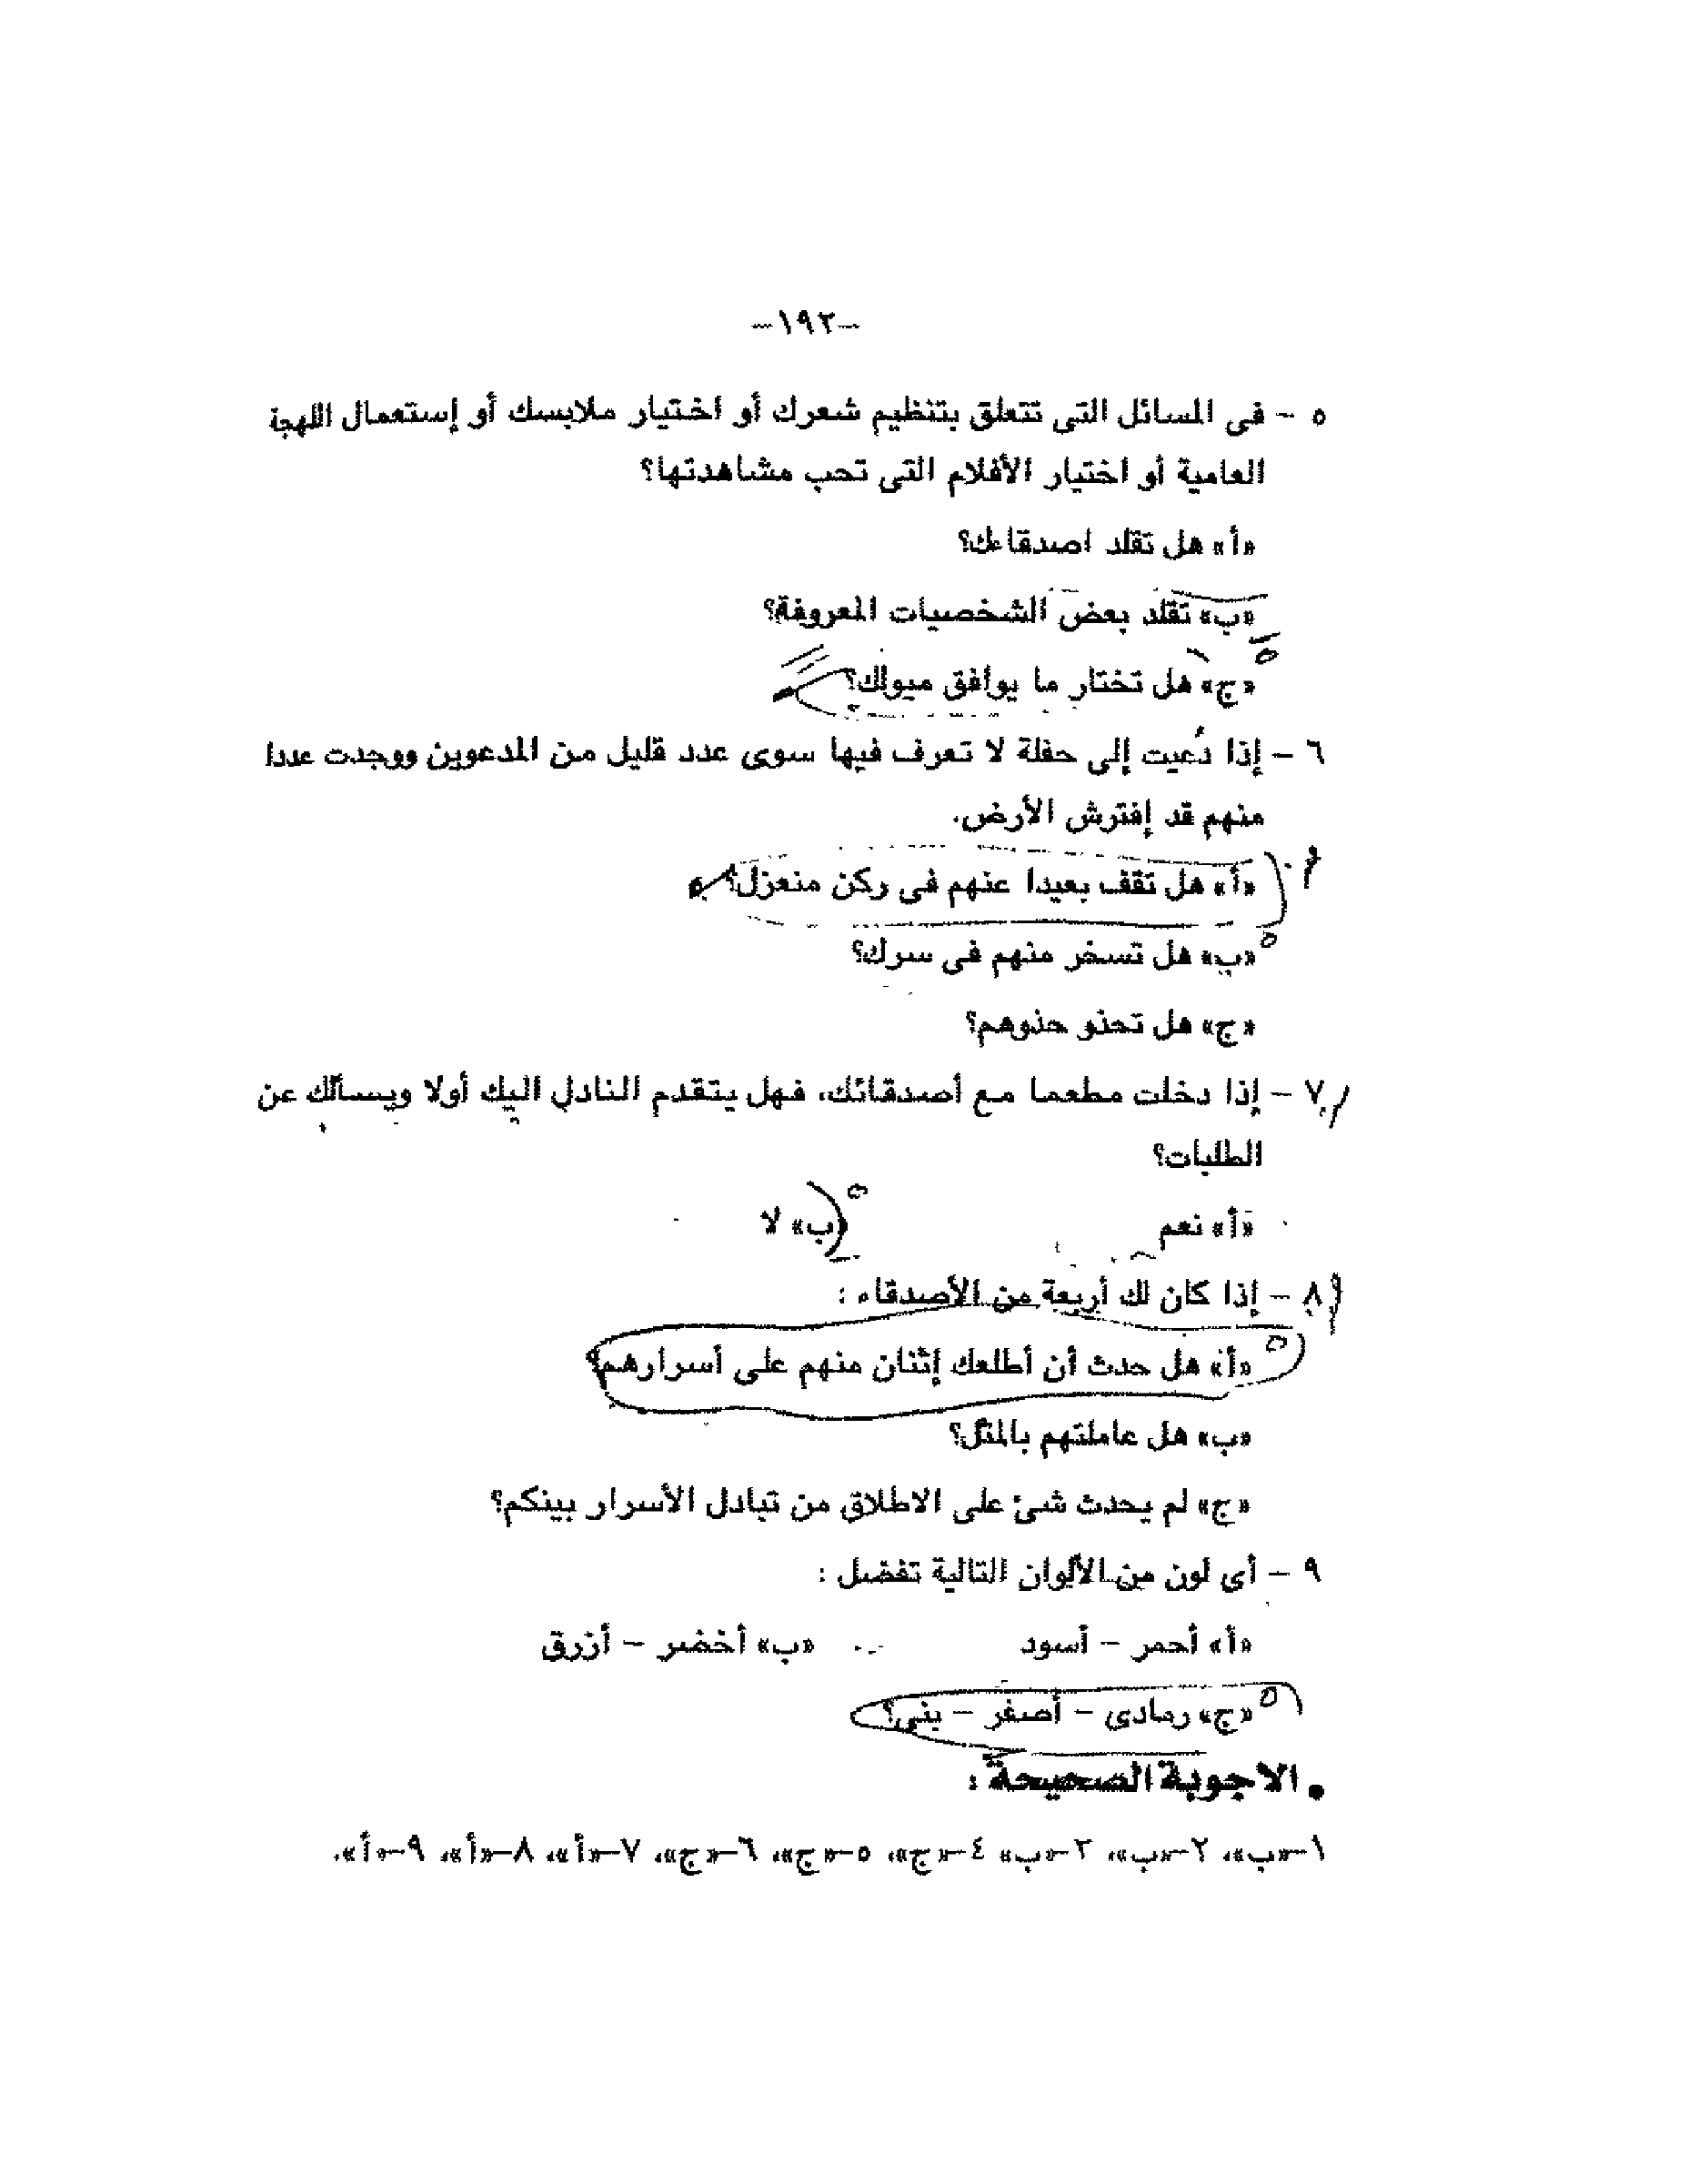 -١٩٢-
٥ - فى المسائل التى تتعلق بتنظيم شعرك أو اختيار ملابسك أو إستعمال اللهجة
العامية أو اختيار الأفلام التى تحب مشاهدتها؟
«أ» هل تقلد اصدقاءك؟
«ب» تقلد بعض الشخصيات المعروفة؟
«ج» هل تختار ما يوافق ميولك؟
٦ - إذا دُعيت إلى حفلة لا تعرف فيها سوى عدد قليل من المدعوين ووجدت عددا
منهم قد إفترش الأرض.
«أ» هل تقف بعيدا عنهم فى ركن منعزل؟
«ب» هل تسخر منهم فى سرك؟
«ج» هل تحذو حذوهم؟
٧ - إذا دخلت مطعما مع أصدقائك، فهل يتقدم النادل اليك أولا ويسألك عن
الطلبات؟
«أ» نعم «ب» لا
٨ - إذا كان لك أربعة من الأصدقاء :
«أ» هل حدث أن أطلعك إثنان منهم على أسرارهم؟
«ب» هل عاملتهم بالمثل؟
«ج» لم يحدث شئ على الاطلاق من تبادل الأسرار بينكم؟
٩ - أى لون من الألوان التالية تفضل :
«أ» أحمر - أسود «ب» أخضر - أزرق
«ج» رمادى - أصفر - بنى؟
• الاجوبة الصحيحة :
١-«ب»، ٢-«ب»، ٣-«ب» ٤-«ج»، ٥-«ج»، ٦-«ج»، ٧-«أ»، ٨-«أ»، ٩-«أ».